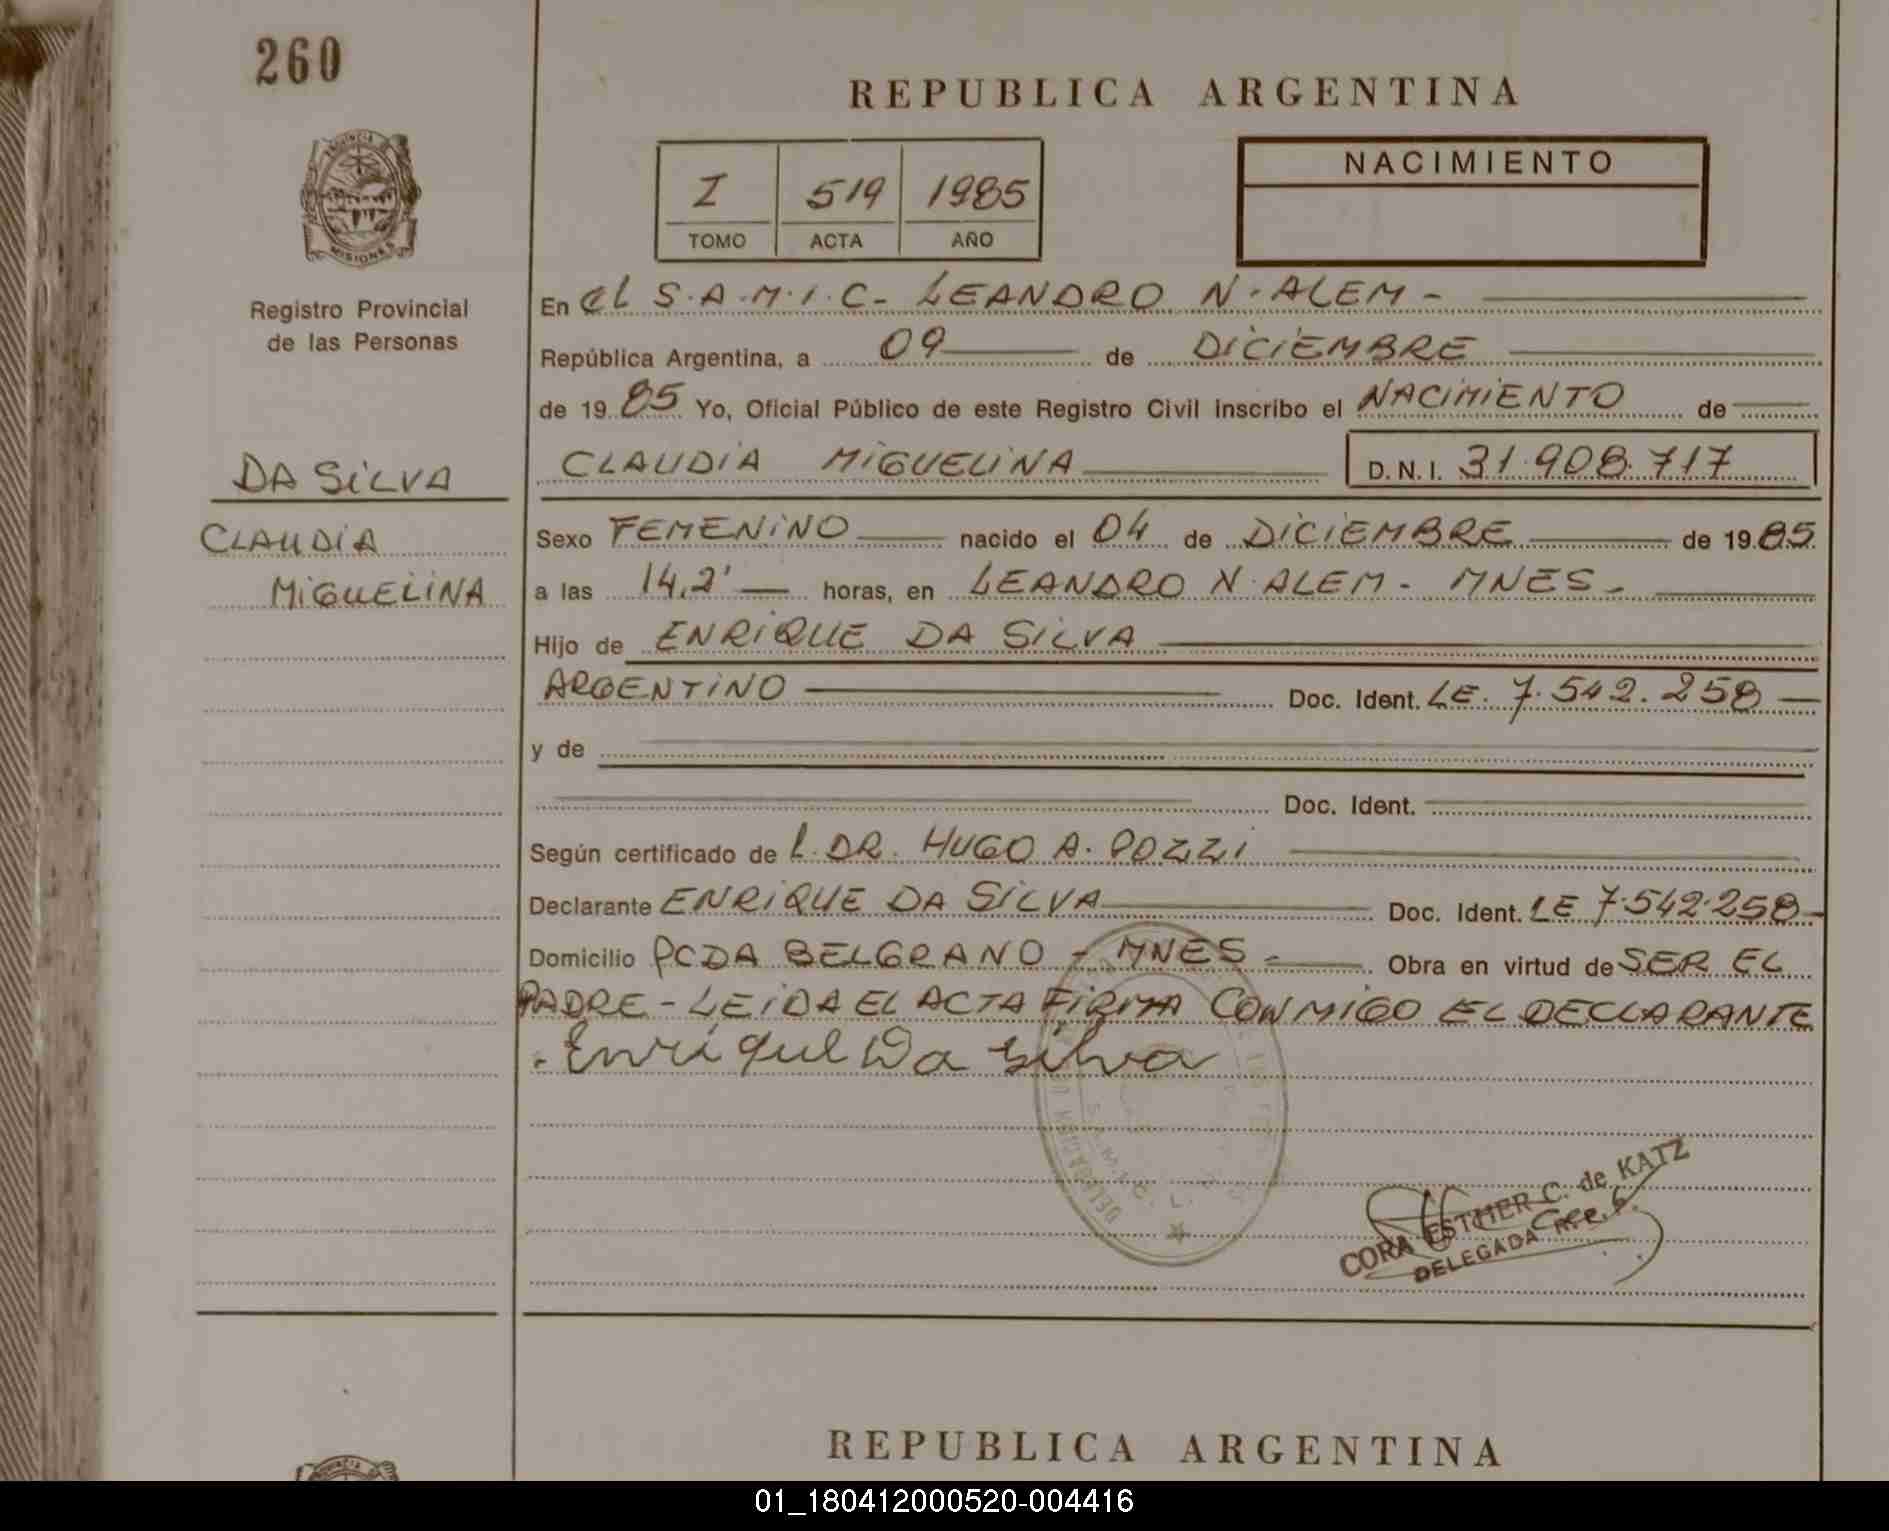 260
REPUBLICA ARGENTINA
PROVINCIA DE
MISIONES
Registro Provincial
de las Personas
I 519 1985
TOMO ACTA AÑO
NACIMIENTO
En el S.A.M.I.C- LEANDRO N. ALEM -
República Argentina, a 09 de DICIEMBRE
de 1985 Yo, Oficial Público de este Registro Civil inscribo el NACIMIENTO de
CLAUDIA MIGUELINA D.N.I. 31.908.717
DA SILVA
CLAUDIA
MIGUELINA
Sexo FEMENINO nacido el 04 de DICIEMBRE de 1985
a las 14,2' horas, en LEANDRO N. ALEM - MNES -
Hijo de ENRIQUE DA SILVA
ARGENTINO Doc. Ident. LE. 7.542.258
y de
Doc. Ident.
Según certificado de L. DR. HUGO A. POZZI
Declarante ENRIQUE DA SILVA Doc. Ident. LE 7.542.258
Domicilio PCDA BELGRANO - MNES - Obra en virtud de SER EL
PADRE - LEIDA EL ACTA FIRMA CONMIGO EL DECLARANTE
Enrique Da Silva
S.A.M.I.C. L.
CORA ESTHER C. de KATZ
DELEGADA R.P.P.
REPUBLICA ARGENTINA
01_180412000520-004416